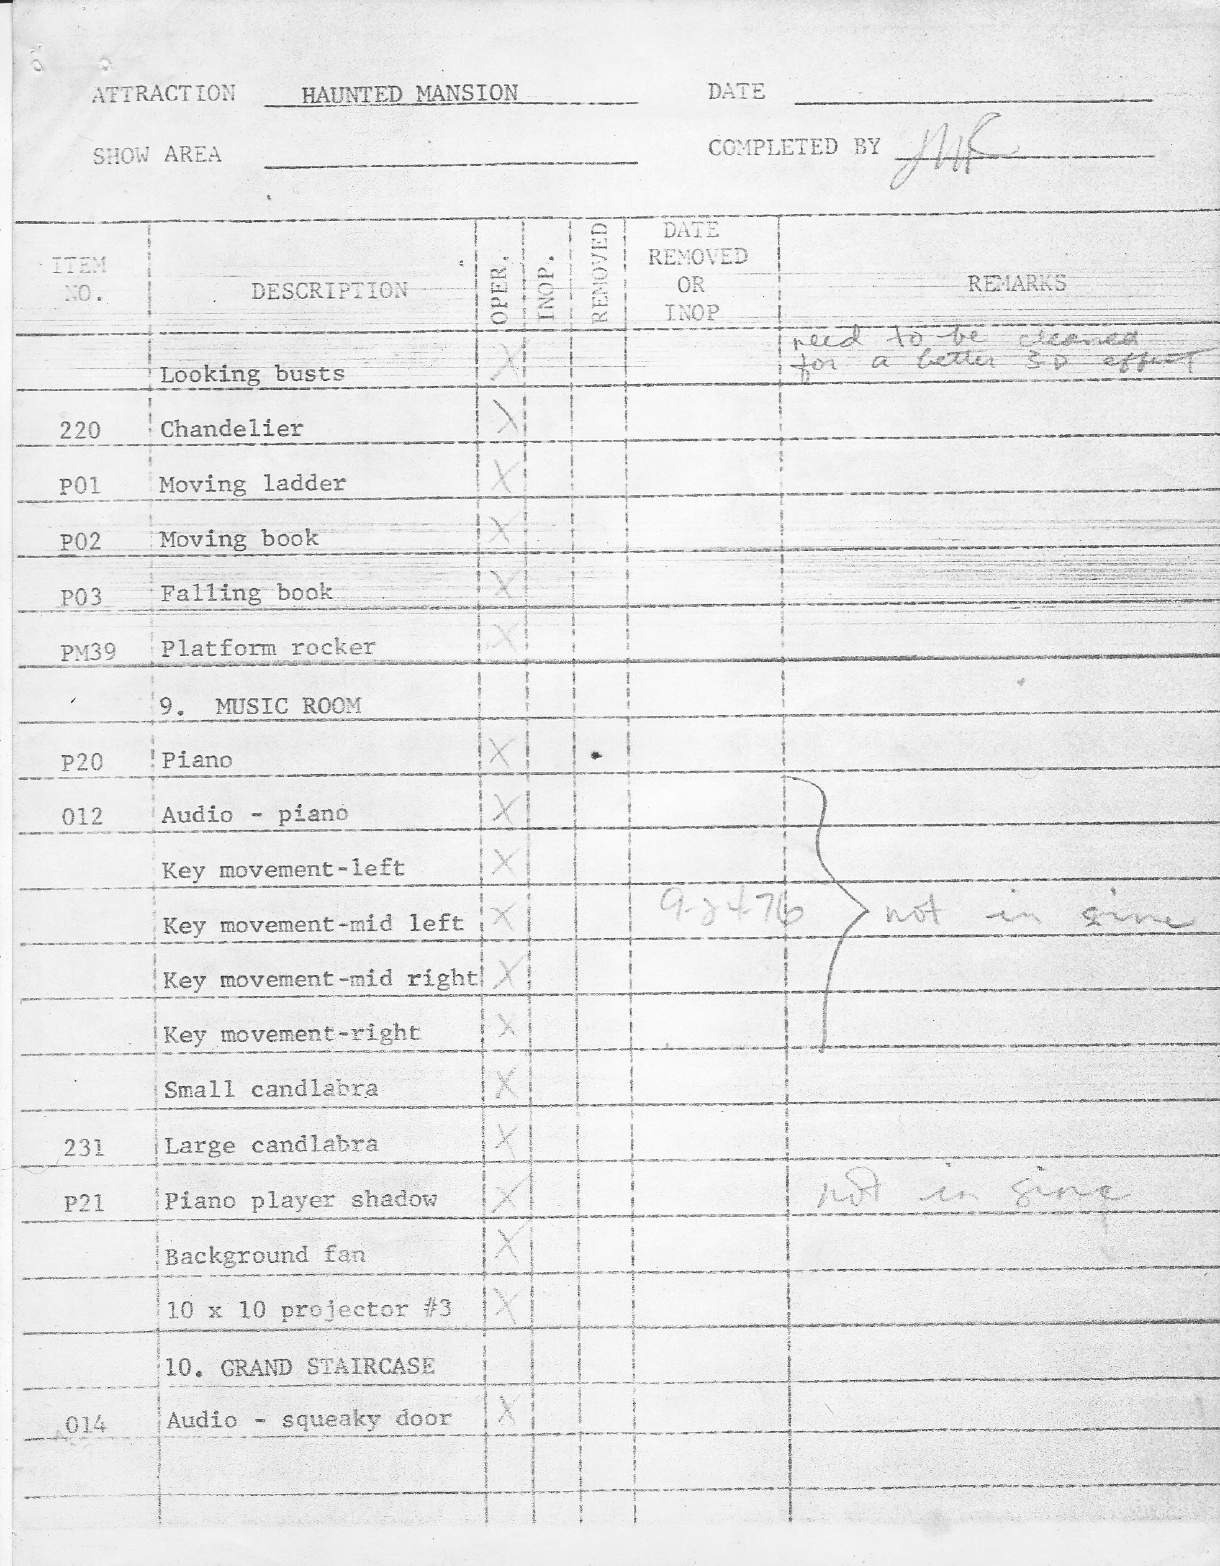 ATTRACTION HAUNTED MANSION DATE
SHOW AREA COMPLETED BY
ITEM NO. DESCRIPTION OPER. INOP. REMOVED DATE REMOVED OR INOP REMARKS
need to be cleaned
Looking busts X for a better 3-D effect
220 Chandelier X
P01 Moving ladder X
P02 Moving book X
P03 Falling book X
PM39 Platform rocker X
9. MUSIC ROOM
P20 Piano X
012 Audio - piano X
Key movement-left X
Key movement-mid left X 9-24-76 not in sinc
Key movement-mid right X
Key movement-right X
Small candlabra X
231 Large candlabra X
P21 Piano player shadow X not in sinc
Background fan X
10 x 10 projector #3 X
10. GRAND STAIRCASE
014 Audio - squeaky door X